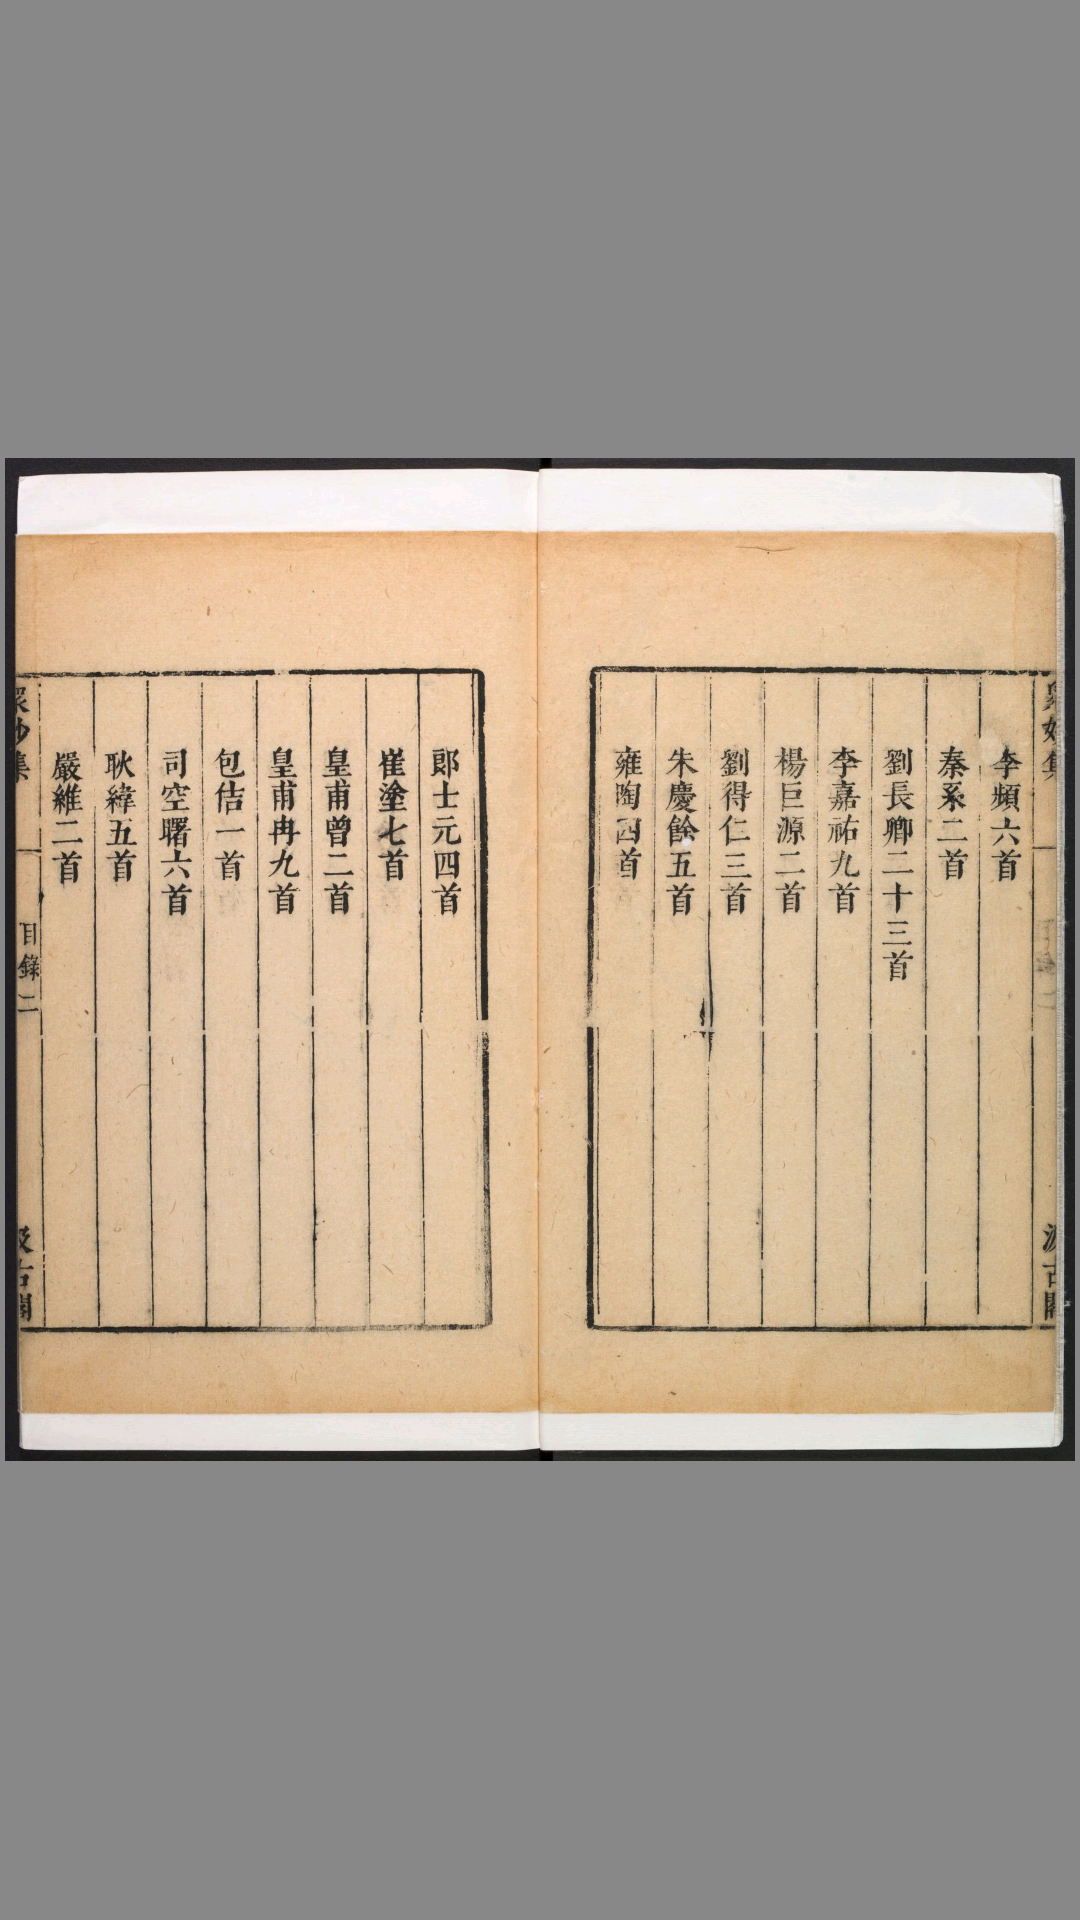 衆妙集
汲古閣
李頻六首
秦系二首
劉長卿二十三首
李嘉祐九首
楊巨源二首
劉得仁三首
朱慶餘五首
雍陶四首
郎士元四首
崔塗七首
皇甫曾二首
皇甫冉九首
包佶一首
司空曙六首
耿緯五首
嚴維二首
衆妙集
目錄
二
汲古閣